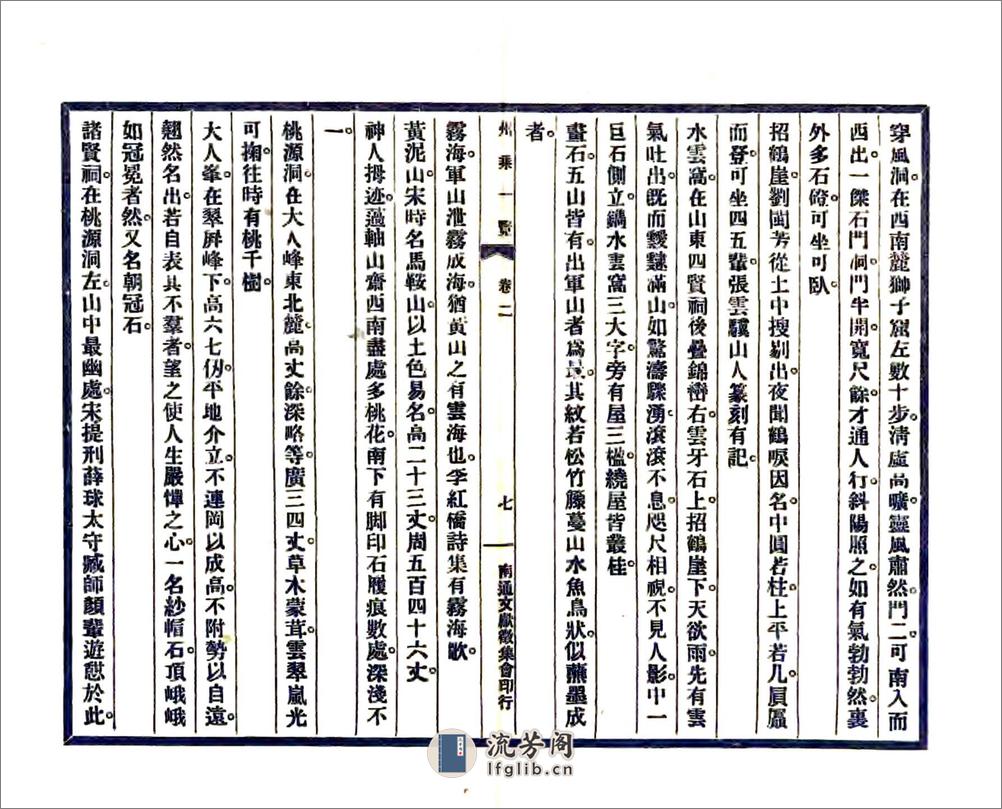 穿風洞。在西南麓獅子窟左數十步。淸虛高曠。靈風肅然。門二。可南入而
西出。一傑石門。洞門半開。寬尺餘。才通人行。斜陽照之。如有氣勃勃然。裏
外多石磴。可坐可臥。
招鶴崖。劉閩芳從土中搜剔出。夜聞鶴唳。因名。中圓若柱。上平若几。屓屭
而登。可坐四五輩。張雲驥山人篆刻有記。
水雲窩。在山東四賢祠後。疊錦巒右。雲牙石上。招鶴崖下。天欲雨。先有雲
氣吐出。旣而靉靆滿山。如驚濤驟湧。滾滾不息。咫尺相視。不見人影。中一
巨石側立。鐫水雲窩三大字。旁有屋三楹。繞屋皆叢桂。
畫石。五山皆有。出軍山者爲最。其紋若松竹籐蔓山水魚鳥狀。似蘸墨成
者。
州乘一覽 卷二 七 南通文獻徵集會印行
霧海。軍山泄霧成海。猶黃山之有雲海也。李紅橋詩集有霧海歌。
黃泥山。宋時名馬鞍山。以土色易名。高二十三丈。周五百四十六丈。
神人拇迹。薖軸山齋西南盡處。多桃花。南下有脚印石。履痕數處。深淺不
一。
桃源洞。在大人峰東北麓。高丈餘。深略等。廣三四丈。草木蒙茸。雲翠嵐光
可掬。往時有桃千樹。
大人峯。在翠屛峰下。高六七仞。平地介立。不連岡以成高。不附勢以自遠。
翹然名出。若自表其不羣者。望之使人生嚴憚之心。一名紗帽石。頂峨峨
如冠冕者然。又名朝冠石。
諸賢祠。在桃源洞左。山中最幽處。宋提刑薛球太守臧師顏輩遊憇於此。
流芳阁
lfglib.cn